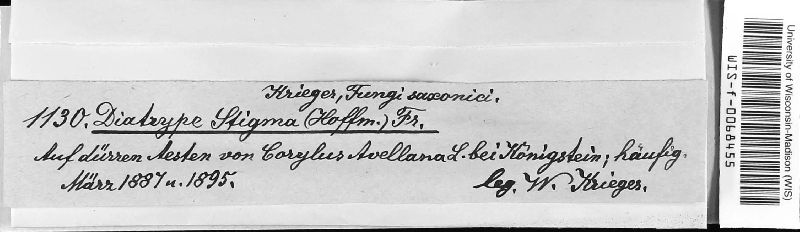 Krieger, Fungi saxonici.
1130. Diatrype Stigma (Hoffm.) Fr.
Auf dürren Aesten von Corylus Avellana L. bei Königstein; häufig.
März 1887 u. 1895. leg. W. Krieger.
University of Wisconsin-Madison (WIS)
WIS-f-0068455